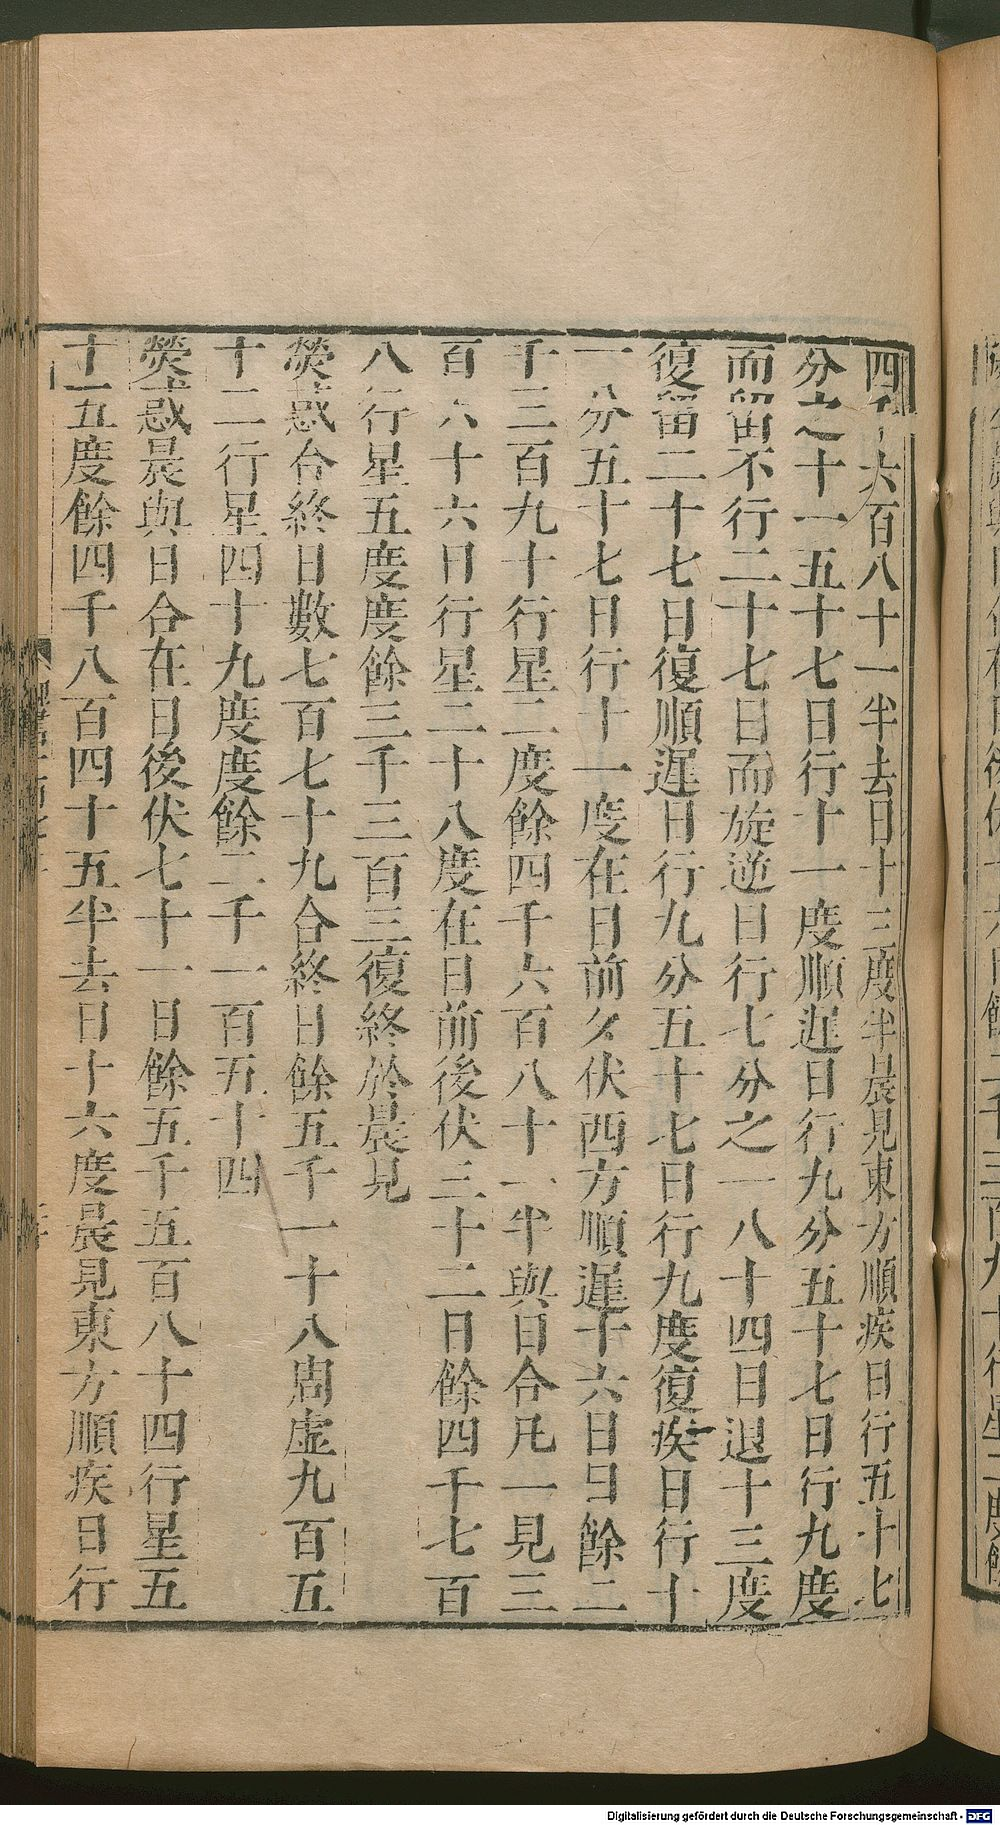 四千六百八十一半去日十三度半晨見東方順疾日行五十七
分之十一五十七日行十一度順遲日行九分五十七日行九度
而留不行二十七日而旋逆日行七分之一八十四日退十三度
復留二十七日復順遲日行九分五十七日行九度復疾日行十
一分五十七日行十一度在日前夕伏西方順遲十六日日餘二
千三百九十行星二度餘四千六百八十一半與日合凡一見三
百六十六日行星二十八度在日前後伏三十二日餘四千七百
八行星五度度餘三千三百三復終於晨見
熒惑合終日數七百七十九合終日餘五千一十八周虛九百五
十二行星四十九度度餘二千一百五十四
熒惑晨與日合在日後伏七十一日餘五千五百八十四行星五
十五度餘四千八百四十五半去日十六度晨見東方順疾日行
Digitalisierung gefördert durch die Deutsche Forschungsgemeinschaft - DFG